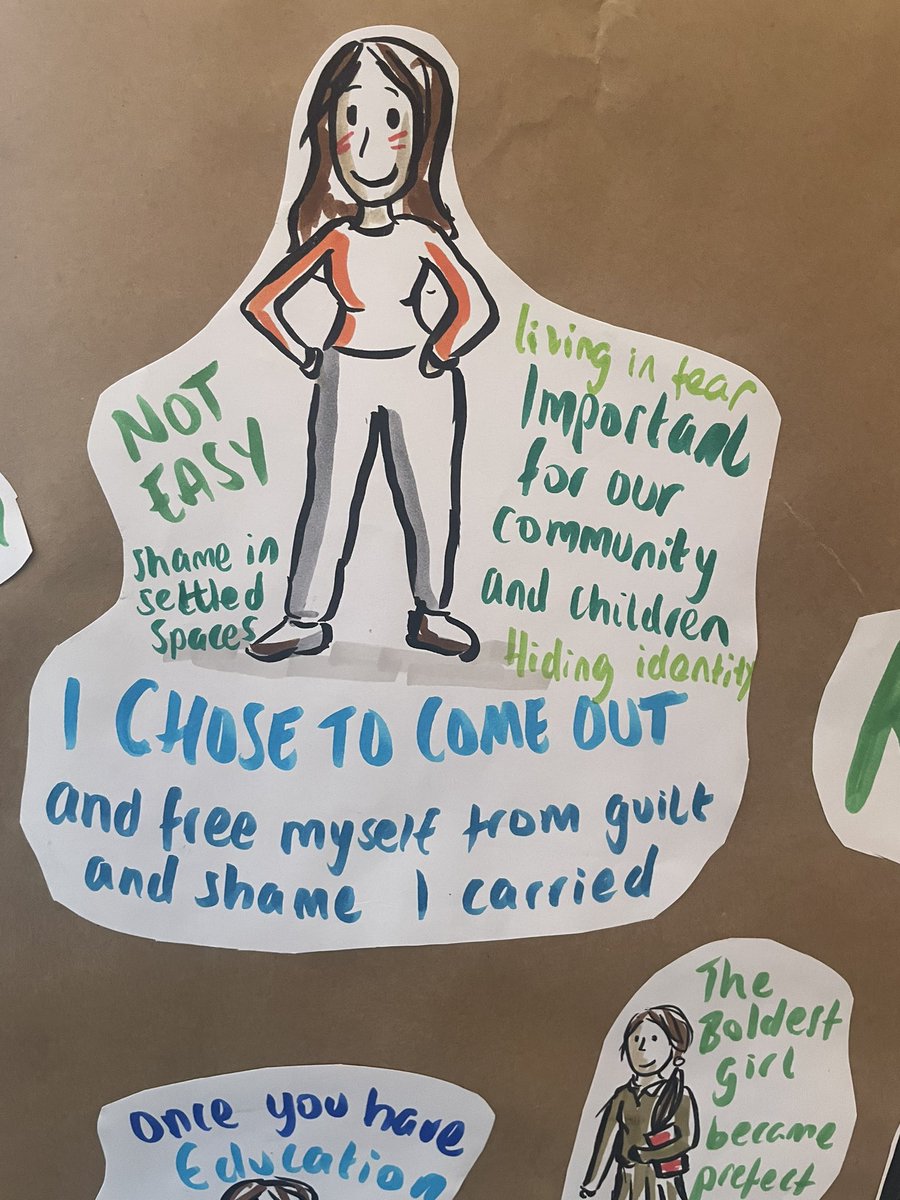 NOT
EASY
shame in
settled
spaces
living in fear
Important
for our
community
and children
Hiding identity
I CHOSE TO COME OUT
and free myself from guilt
and shame I carried
The
Boldest
girl
became
prefect
Once you have
Education